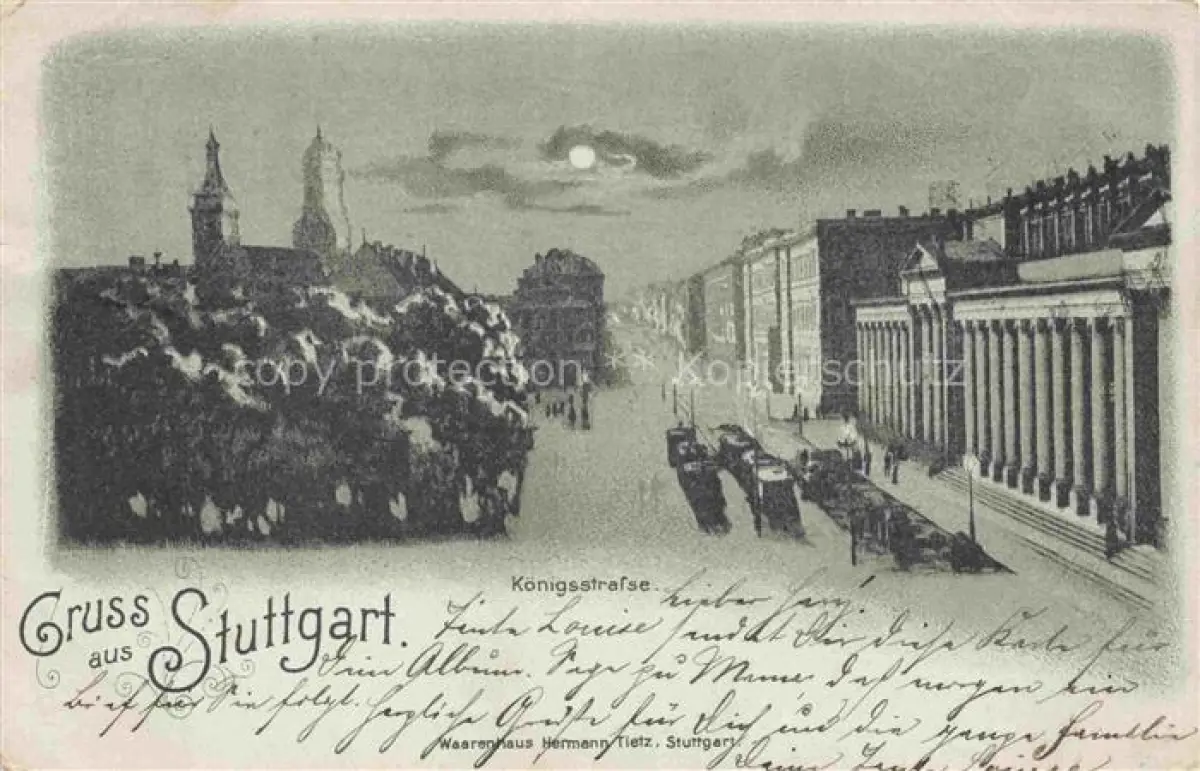 copy protection *** Kopierschutz
Königsstraſse.
Gruss
aus
Stuttgart.
Lieber Harry!
Tante Louise sendet Dir diese Karte für
Dein Album. Sage zu Mama, daß morgen ein
Brief für Sie folgt. Herzliche Grüße für Dich und die ganze Familie
Waarenhaus Hermann Tietz, Stuttgart.
Deine Tante Louise